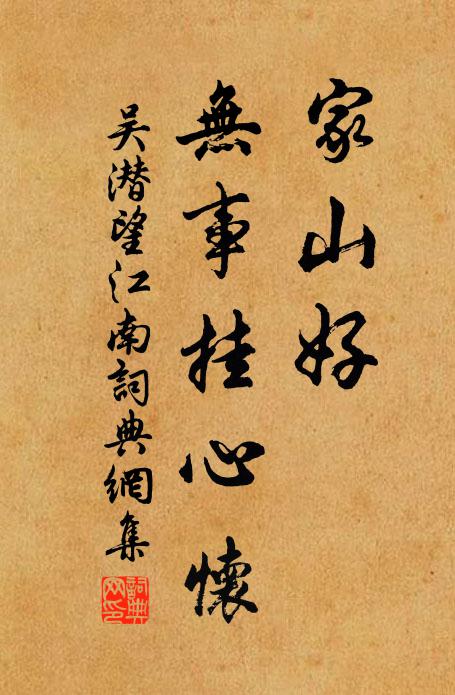 家山好
無事挂心懷
吴潛望江南詞典網集
詞典网印